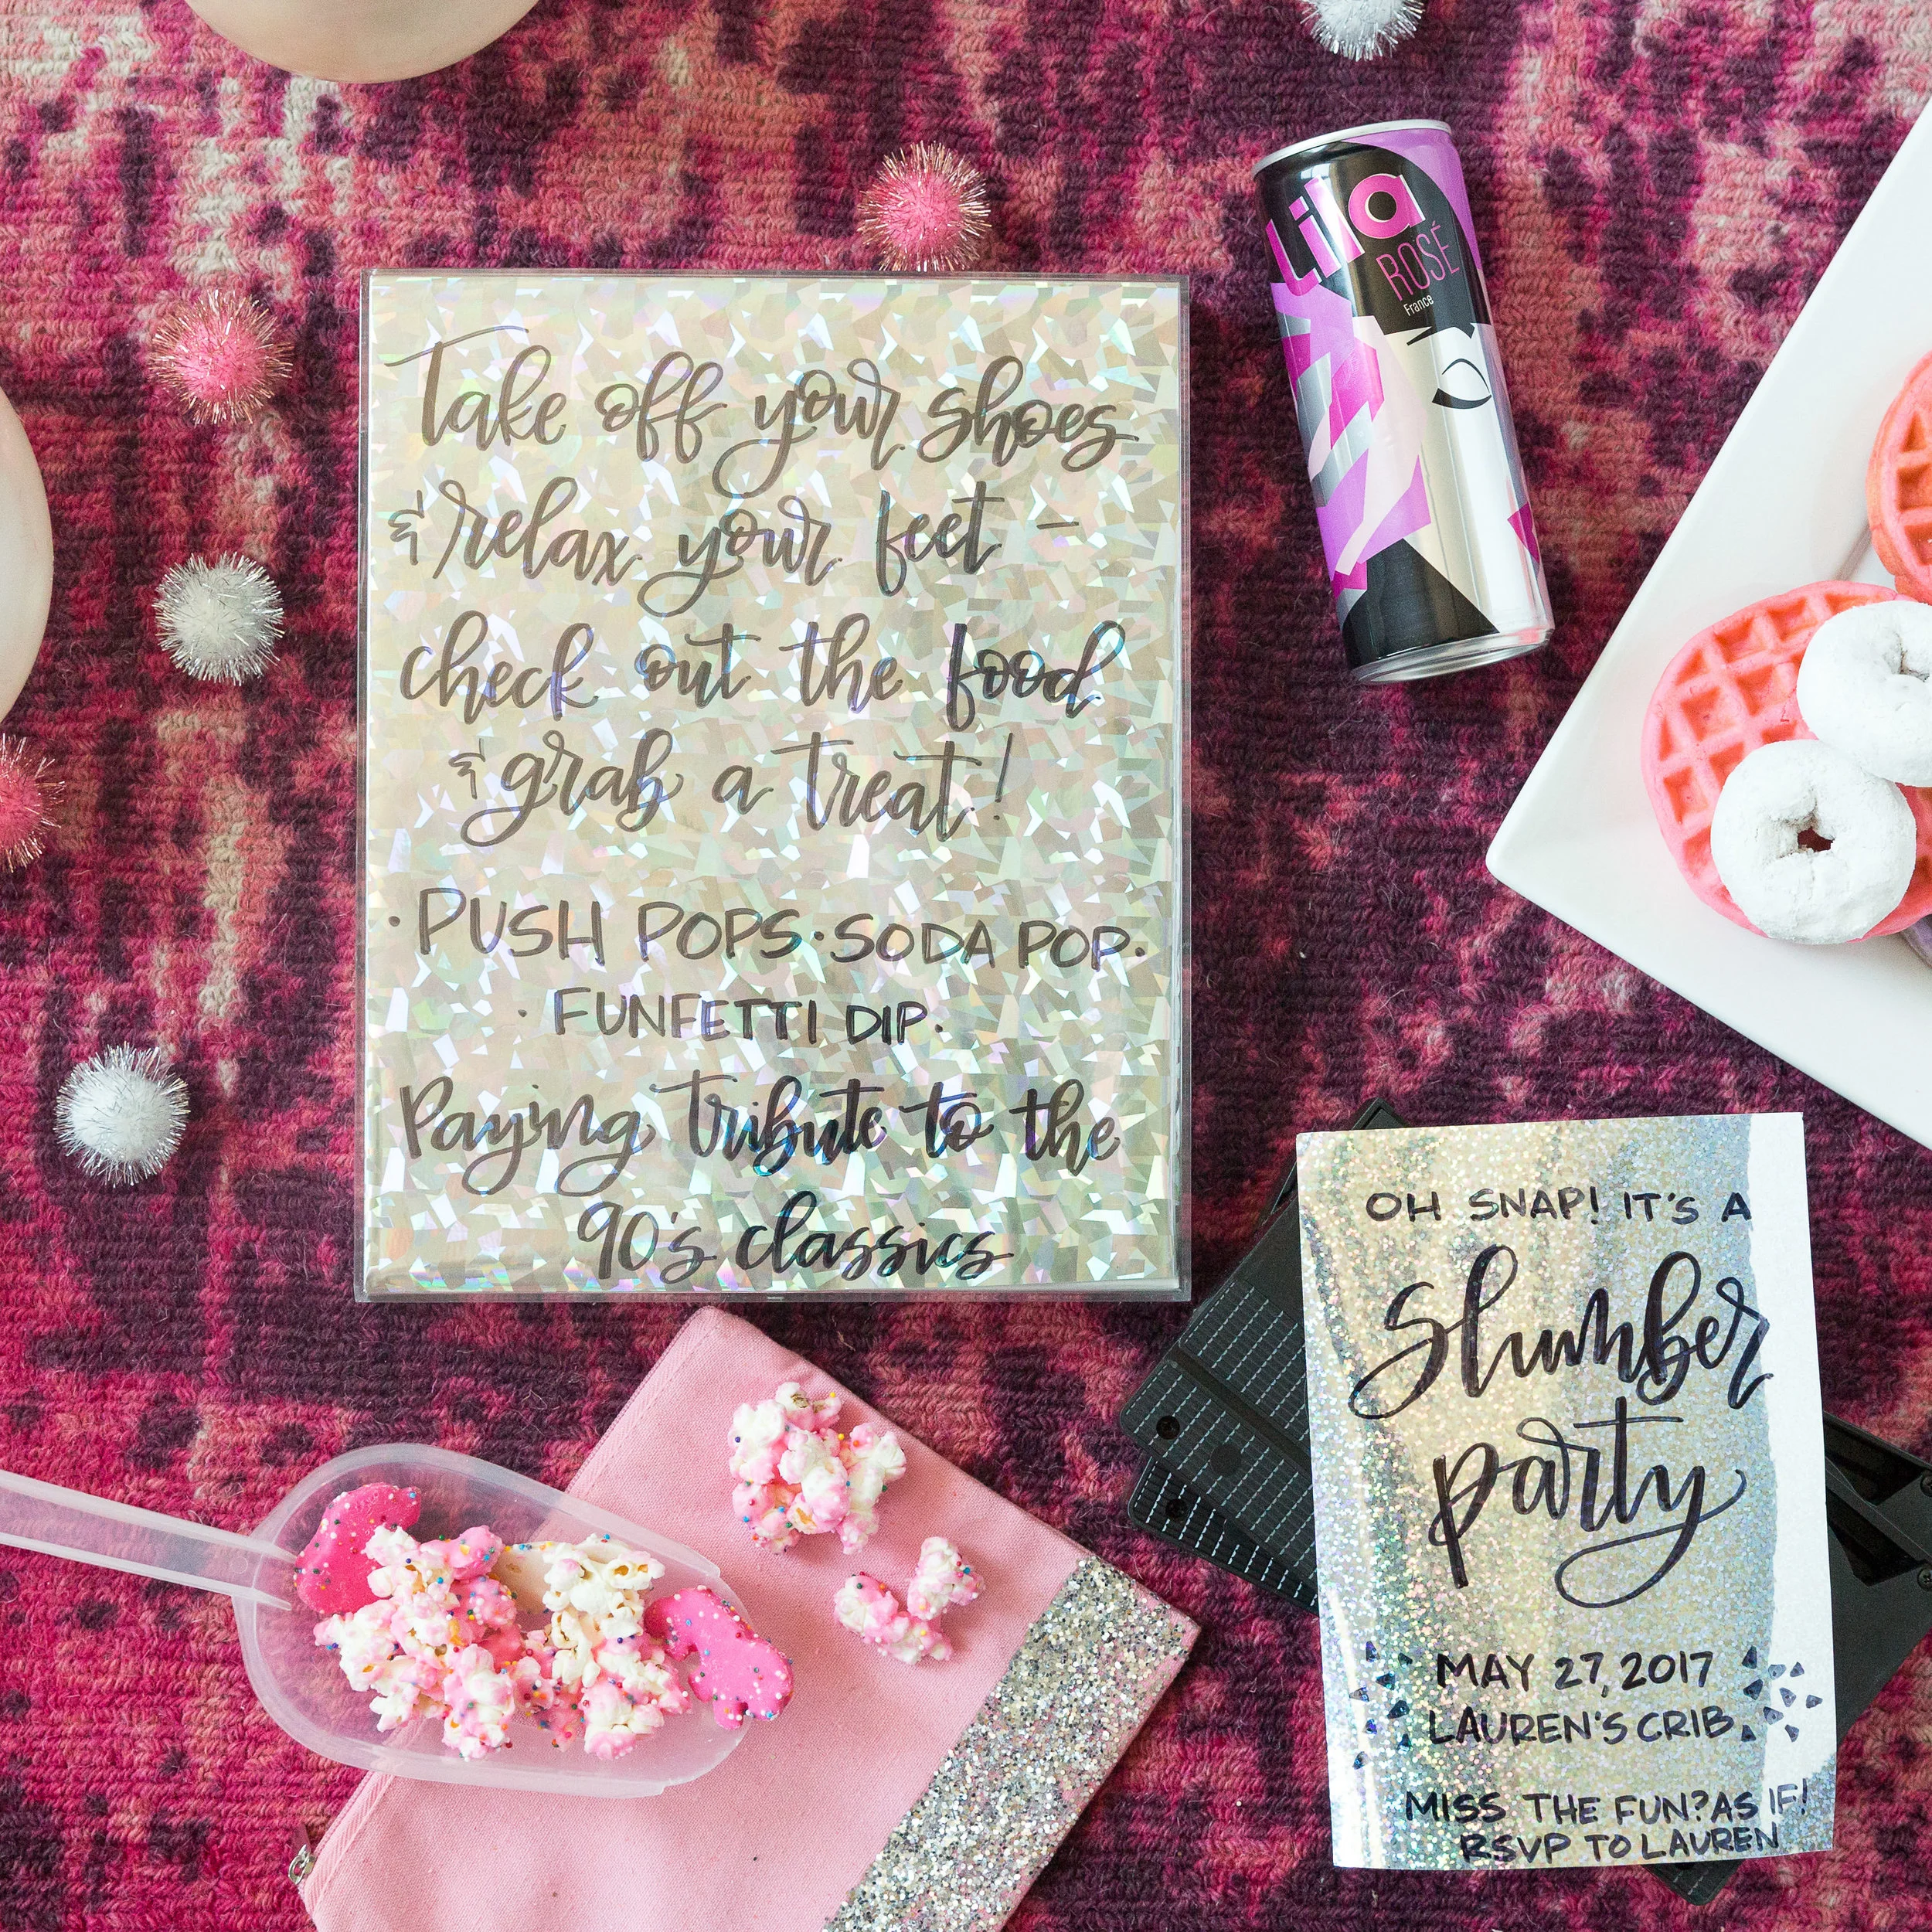 Take off your shoes
& relax your feet -
check out the food
& grab a treat!
· PUSH POPS · SODA POP ·
· FUNFETTI DIP ·
Paying tribute to the
90's classics
Lila
ROSÉ
France
OH SNAP! IT'S A
Slumber
party
MAY 27, 2017
LAUREN'S CRIB
MISS THE FUN? AS IF!
RSVP TO LAUREN